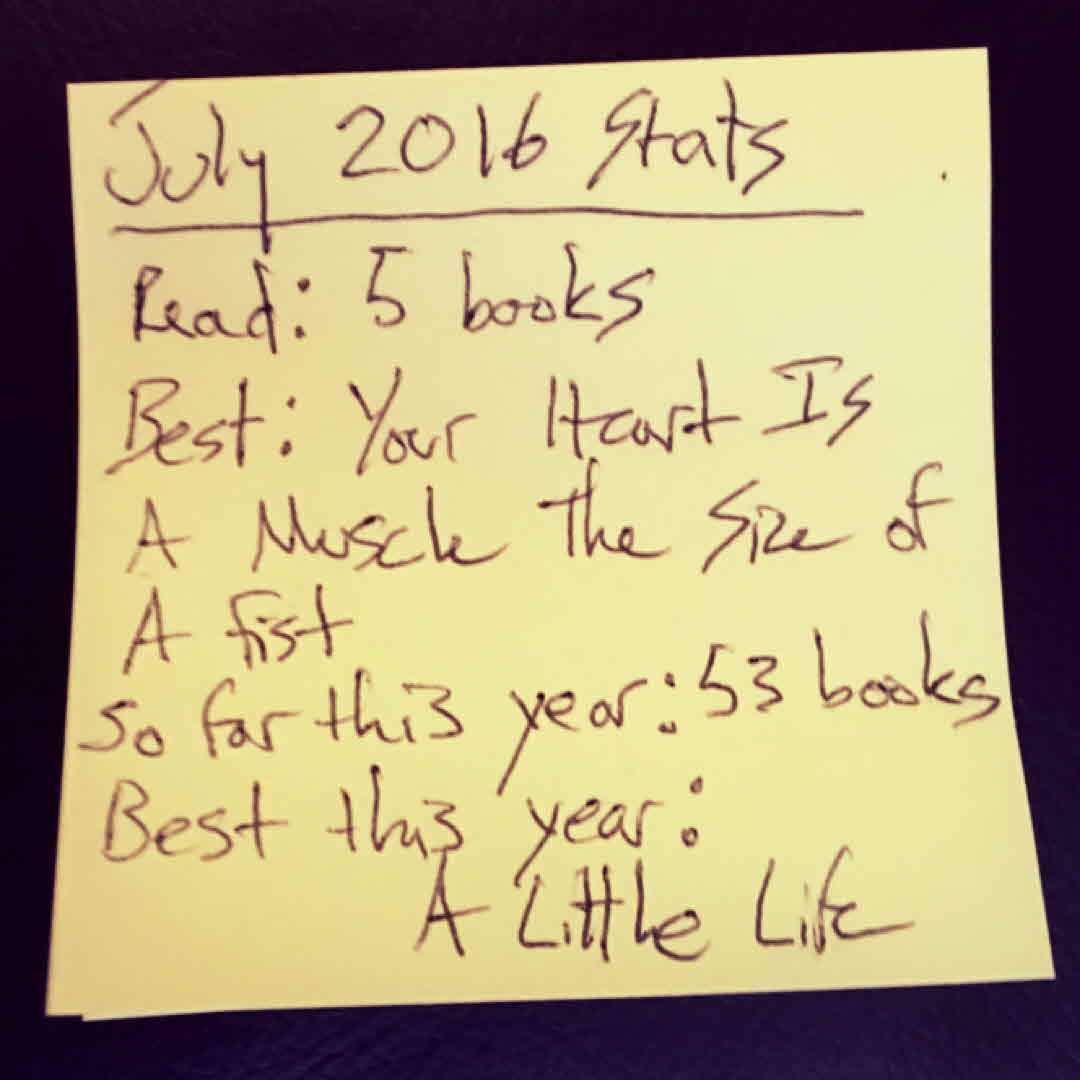 July 2016 Stats
Read: 5 books
Best: Your Heart Is
A Muscle the Size of
A fist
So far this year: 53 books
Best this year:
A Little Life